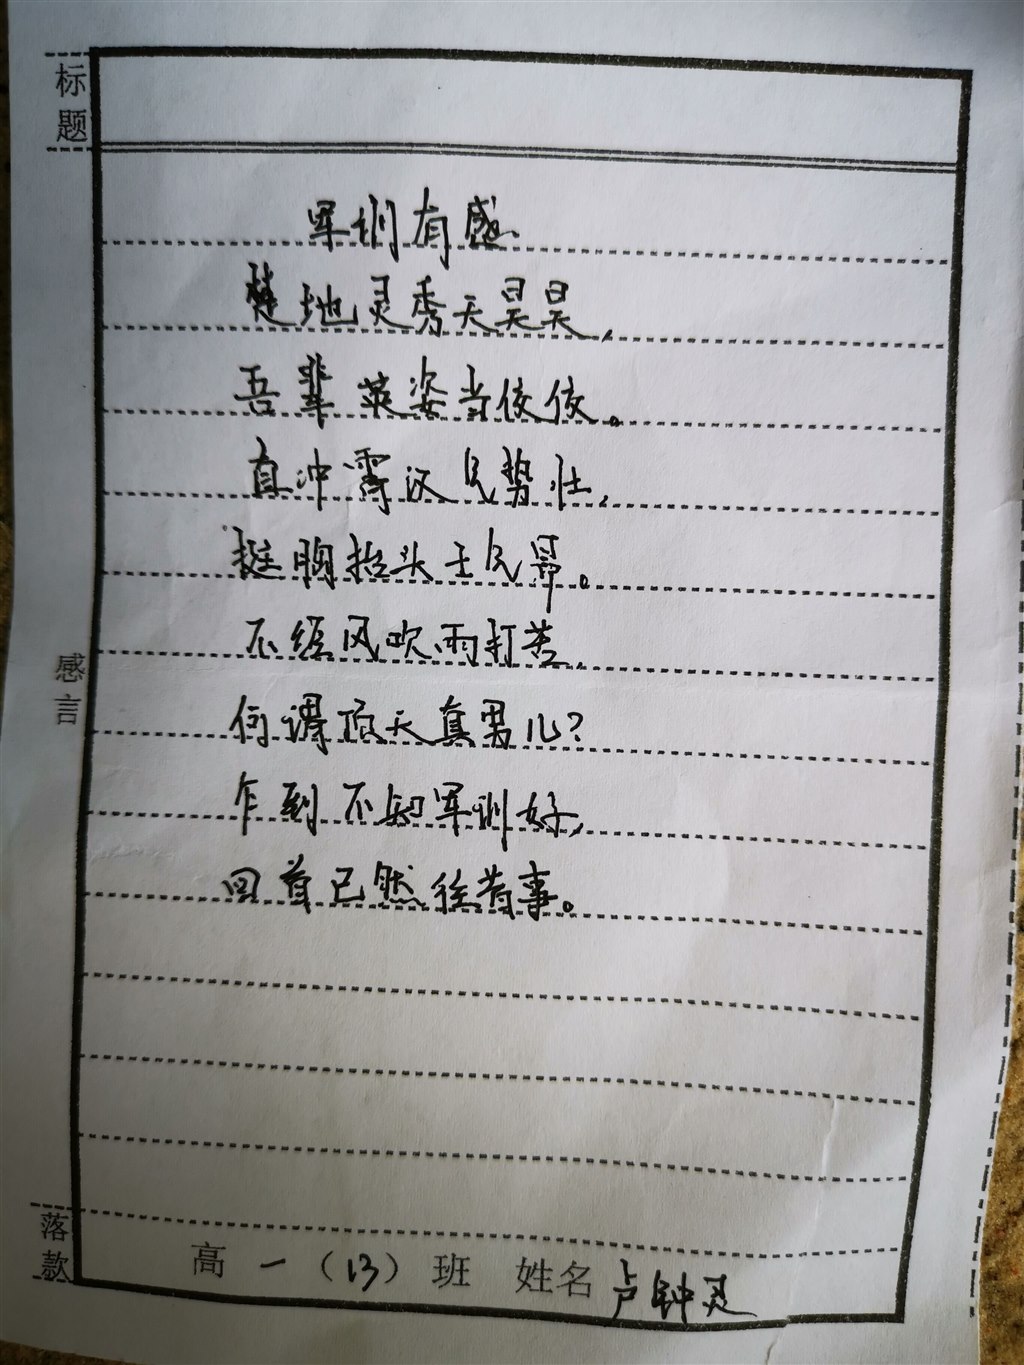 标题
军训有感
楚地灵秀天昊昊，
吾辈英姿当佼佼。
直冲霄汉气势壮，
挺胸抬头士气昂。
不经风吹雨打苦，
何谓顶天真男儿？
乍到不知军训好，
回首已然往昔事。
感言
落款
高一（13）班 姓名 卢钟灵